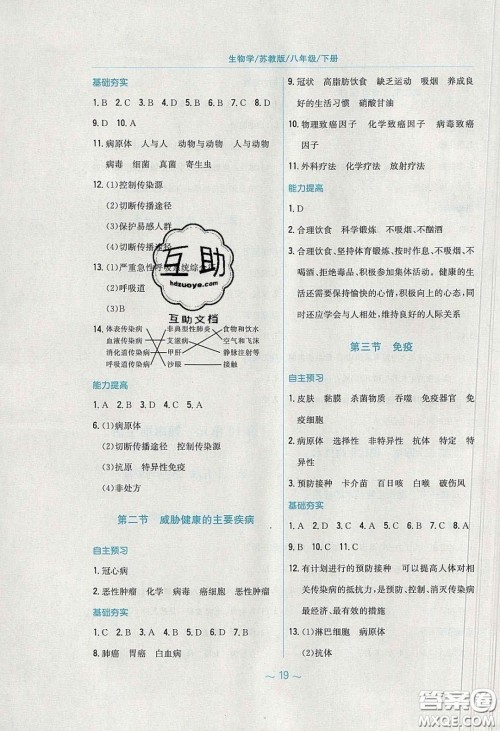 生物学/苏教版/八年级/下册
基础夯实
1. B 2. C 3. B 4. D 5. D 6. B 7. D 8. D
9. D 10. A
11. 病原体 人与人 动物与动物 人与动物
病毒 细菌 真菌 寄生虫
12. (1)控制传染源
(2)切断传播途径
(3)保护易感人群
(4)切断传播途径
13. (1)严重急性呼吸系统综合征
(2)呼吸道
(3)B
14. 体表传染病 非典型性肺炎 食物和饮水
血液传染病 艾滋病 空气和飞沫
消化道传染病 甲肝 静脉注射等
呼吸道传染病 沙眼 接触
能力提高
1. A 2. D 3. B 4. C 5. A
6. (1)病原体
(2)切断传播途径 控制传染源
(3)抗原 特异性免疫
(4)非处方
第二节 威胁健康的主要疾病
自主预习
1. 冠心病
2. 恶性肿瘤 化学 病毒 癌细胞 恶性肿瘤
基础夯实
1. C 2. D 3. B 4. D 5. B 6. D 7. B
8. 肺癌 胃癌 白血病
9. 冠状 高脂肪饮食 缺乏运动 吸烟 养成良
好的生活习惯 硝酸甘油
10. 物理致癌因子 化学致癌因子 病毒致癌
因子
11. 外科疗法 化学疗法 放射疗法
能力提高
1. D
2. 合理饮食 科学锻炼 不吸烟、不酗酒
3. 合理饮食、坚持体育锻炼、按时作息、不吸烟、不
喝酒、拒绝毒品、积极参加集体活动。健康的生
活还要保持愉快的心情、积极向上的心态、还应
学会与人相处、维持良好的人际关系
第三节 免疫
自主预习
1. 皮肤 黏膜 杀菌物质 吞噬 免疫器官 免
疫细胞
2. 病原体 选择性 非特异性 抗体 特定
特异性
3. 预防接种 卡介苗 百日咳 白喉 破伤风
基础夯实
1. C 2. C 3. A 4. D 5. D 6. C 7. A 8. B
9. B 10. C 11. C
12. 有计划进行的预防接种 可以提高人体对相
关传染病的抵抗力,是预防、控制、消灭传染病
最经济、最有效的措施
13. (1)淋巴细胞 病原体
(2)抗体
互助
hdzuoye.com
互助文档
～ 19 ～
答案圈
MXQE.COM